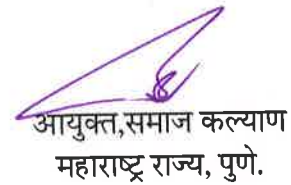 आयुक्त,समाज कल्याण
महाराष्ट्र राज्य, पुणे.